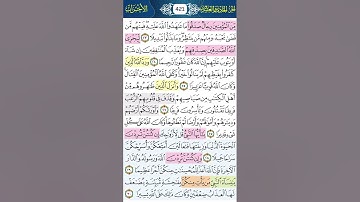 الجزء الحادي والعشرون 421 الأحزاب
مِّنَ ٱلْمُؤْمِنِينَ رِجَالٌ صَدَقُوا۟ مَا عَٰهَدُوا۟ ٱللَّهَ عَلَيْهِ فَمِنْهُم مَّن
قَضَىٰ نَحْبَهُۥ وَمِنْهُم مَّن يَنتَظِرُ وَمَا بَدَّلُوا۟ تَبْدِيلًا ٢٣ لِّيَجْزِىَ
ٱللَّهُ ٱلصَّٰدِقِينَ بِصِدْقِهِمْ وَيُعَذِّبَ ٱلْمُنَٰفِقِينَ إِن شَآءَ
أَوْ يَتُوبَ عَلَيْهِمْ إِنَّ ٱللَّهَ كَانَ غَفُورًا رَّحِيمًا ٢٤ وَرَدَّ ٱللَّهُ ٱلَّذِينَ
كَفَرُوا۟ بِغَيْظِهِمْ لَمْ يَنَالُوا۟ خَيْرًا وَكَفَى ٱللَّهُ ٱلْمُؤْمِنِينَ ٱلْقِتَالَ
وَكَانَ ٱللَّهُ قَوِيًّا عَزِيزًا ٢٥ وَأَنزَلَ ٱلَّذِينَ ظَٰهَرُوهُم مِّنْ
أَهْلِ ٱلْكِتَٰبِ مِن صَيَاصِيهِمْ وَقَذَفَ فِى قُلُوبِهِمُ ٱلرُّعْبَ
فَرِيقًا تَقْتُلُونَ وَتَأْسِرُونَ فَرِيقًا ٢٦ وَأَوْرَثَكُمْ أَرْضَهُمْ
وَدِيَٰرَهُمْ وَأَمْوَٰلَهُمْ وَأَرْضًا لَّمْ تَطَـُٔوهَا وَكَانَ ٱللَّهُ عَلَىٰ كُلِّ
شَىْءٍ قَدِيرًا ٢٧ يَٰٓأَيُّهَا ٱلنَّبِىُّ قُل لِّأَزْوَٰجِكَ إِن كُنتُنَّ تُرِدْنَ
ٱلْحَيَوٰةَ ٱلدُّنْيَا وَزِينَتَهَا فَتَعَالَيْنَ أُمَتِّعْكُنَّ وَأُسَرِّحْكُنَّ
سَرَاحًا جَمِيلًا ٢٨ وَإِن كُنتُنَّ تُرِدْنَ ٱللَّهَ وَرَسُولَهُۥ وَٱلدَّارَ
ٱلْءَاخِرَةَ فَإِنَّ ٱللَّهَ أَعَدَّ لِلْمُحْسِنَٰتِ مِنكُنَّ أَجْرًا عَظِيمًا ٢٩
يَٰنِسَآءَ ٱلنَّبِىِّ مَن يَأْتِ مِنكُنَّ بِفَٰحِشَةٍ مُّبَيِّنَةٍ يُضَٰعَفْ
لَهَا ٱلْعَذَابُ ضِعْفَيْنِ وَكَانَ ذَٰلِكَ عَلَى ٱللَّهِ يَسِيرًا ٣٠